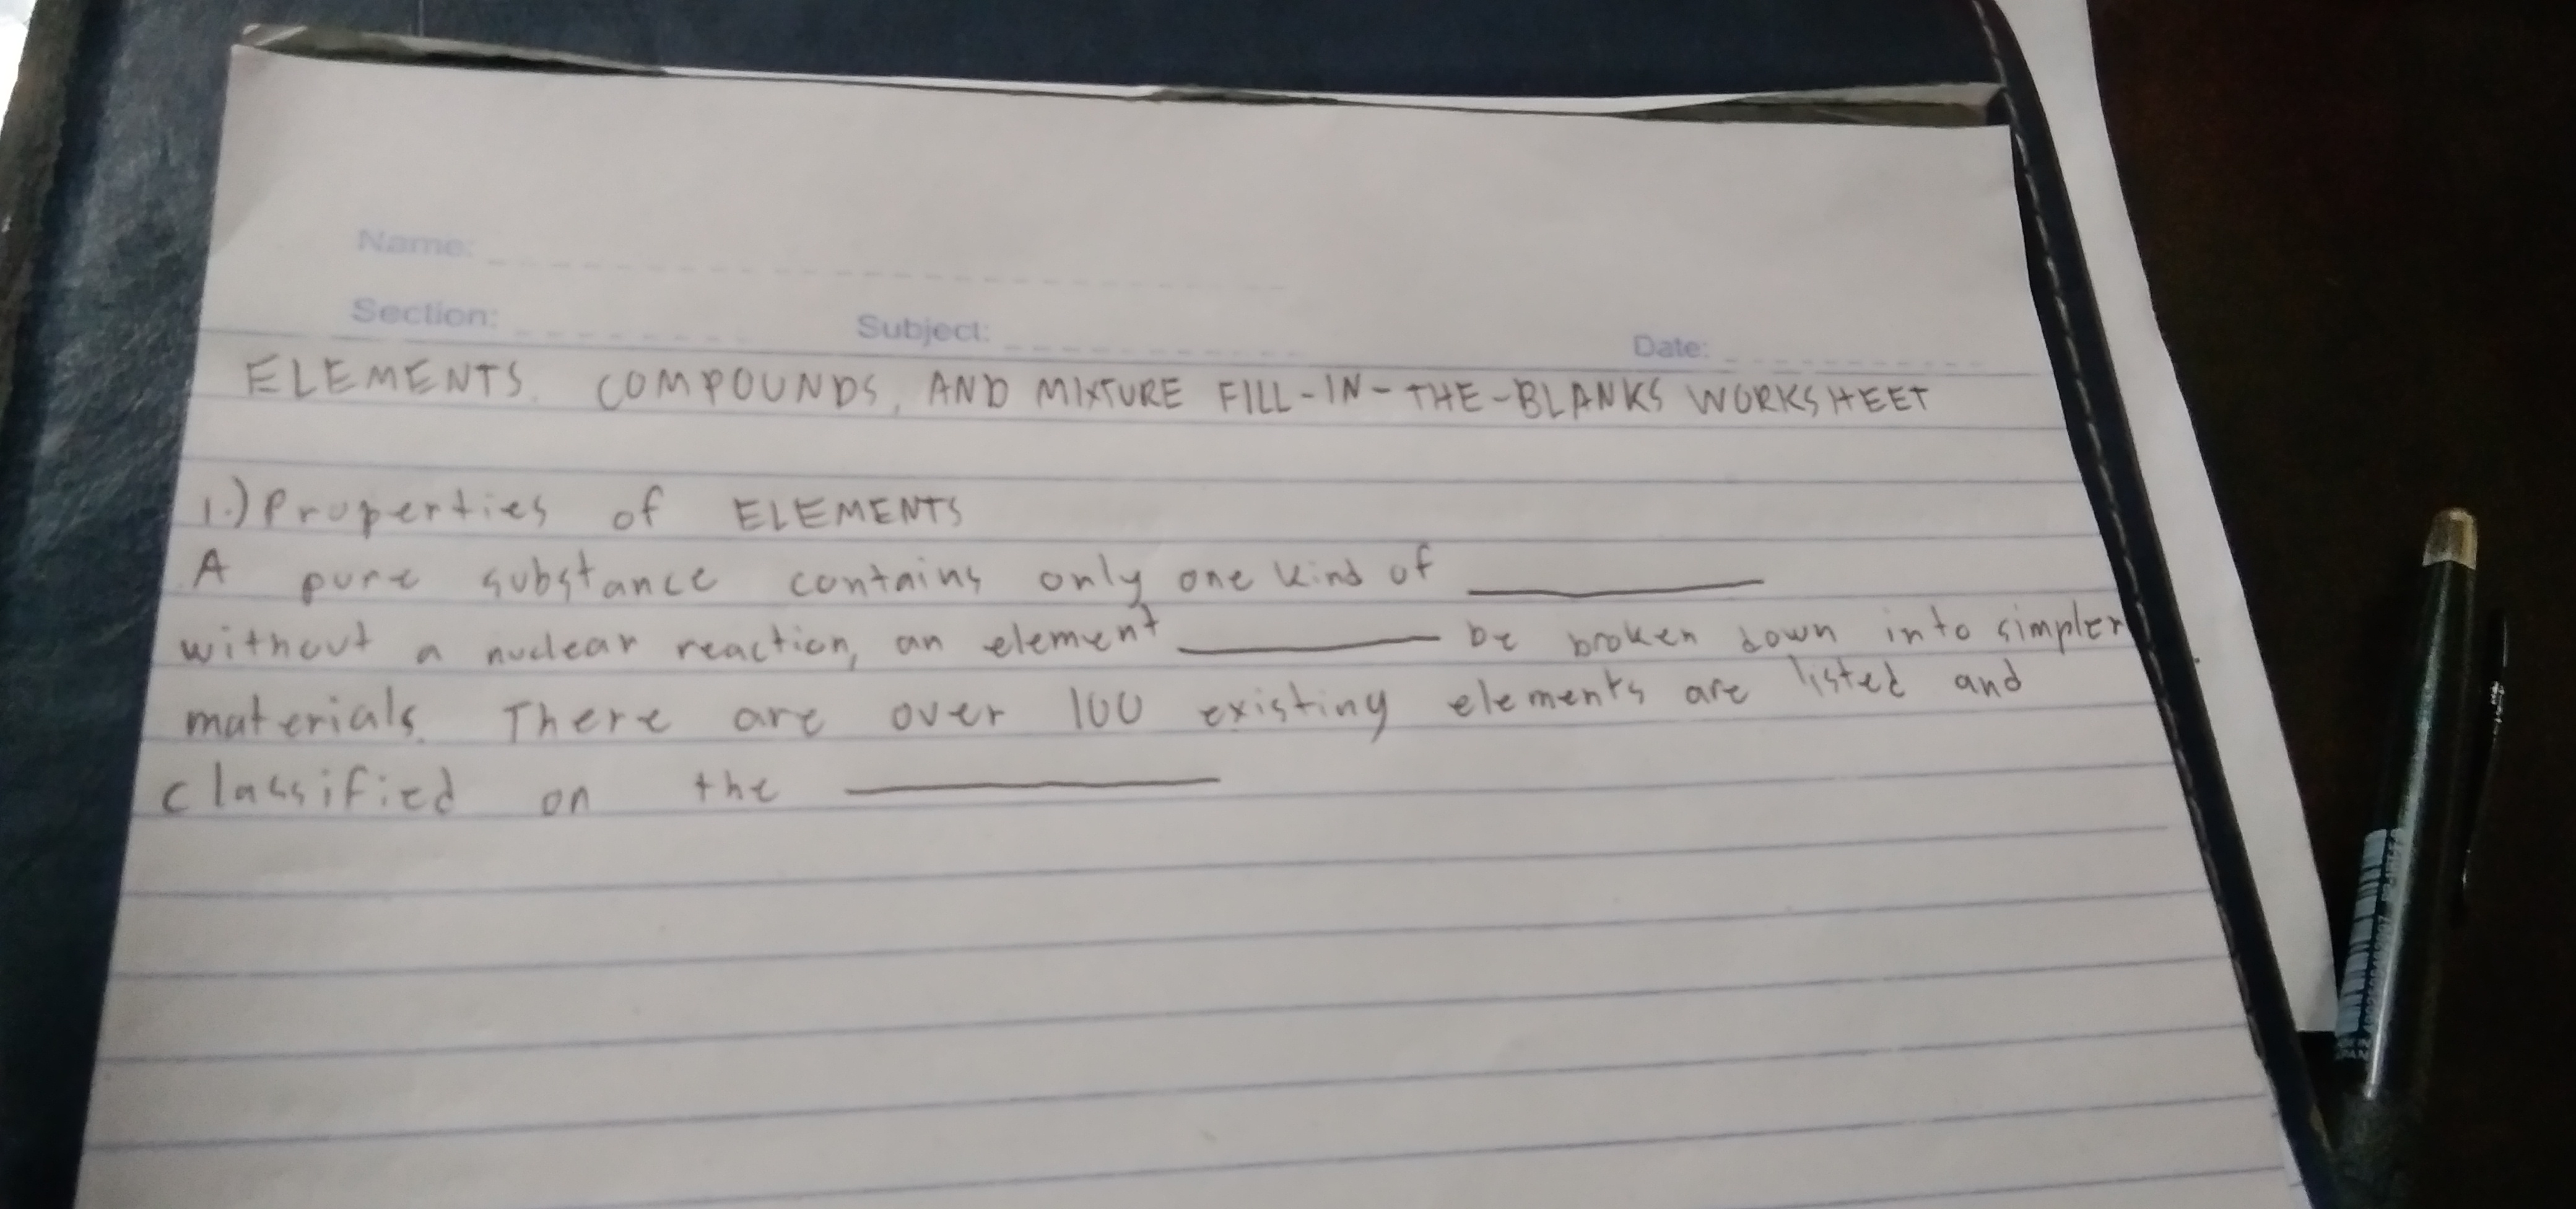 Name:
Section: Subject: Date:
ELEMENTS. COMPOUNDS, AND MIXTURE FILL-IN-THE-BLANKS WORKSHEET
1.) Properties of ELEMENTS
A pure substance contains only one kind of ________
without a nuclear reaction, an element ________ be broken down into simpler
materials. There are over 100 existing elements are listed and
classified on the ________